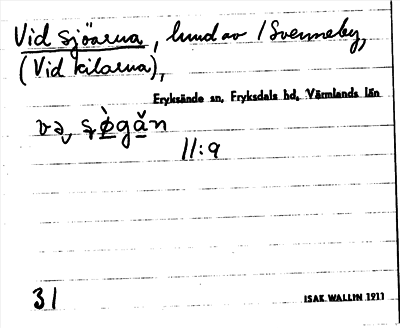 Vid sjöarna, hmd av / Svenneby,
(Vid kilarna),
Fryksände sn, Fryksdals hd, Värmlands län
11:9
31
ISAK WALLIN 1911